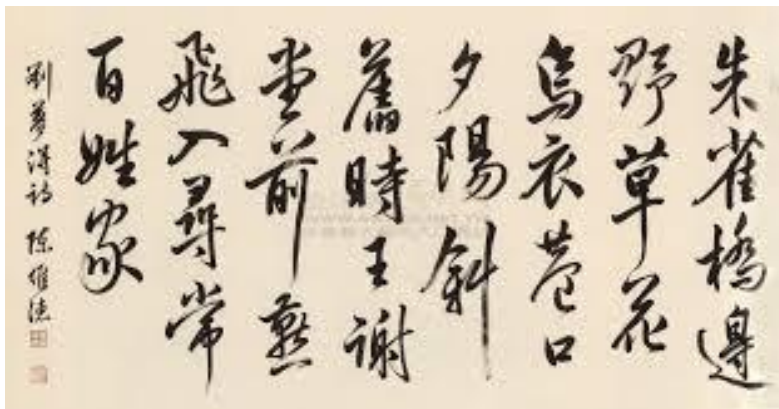 朱雀橋邊
野草花
烏衣巷口
夕陽斜
舊時王謝
堂前燕
飛入尋常
百姓家
劉夢得詩 陳維德